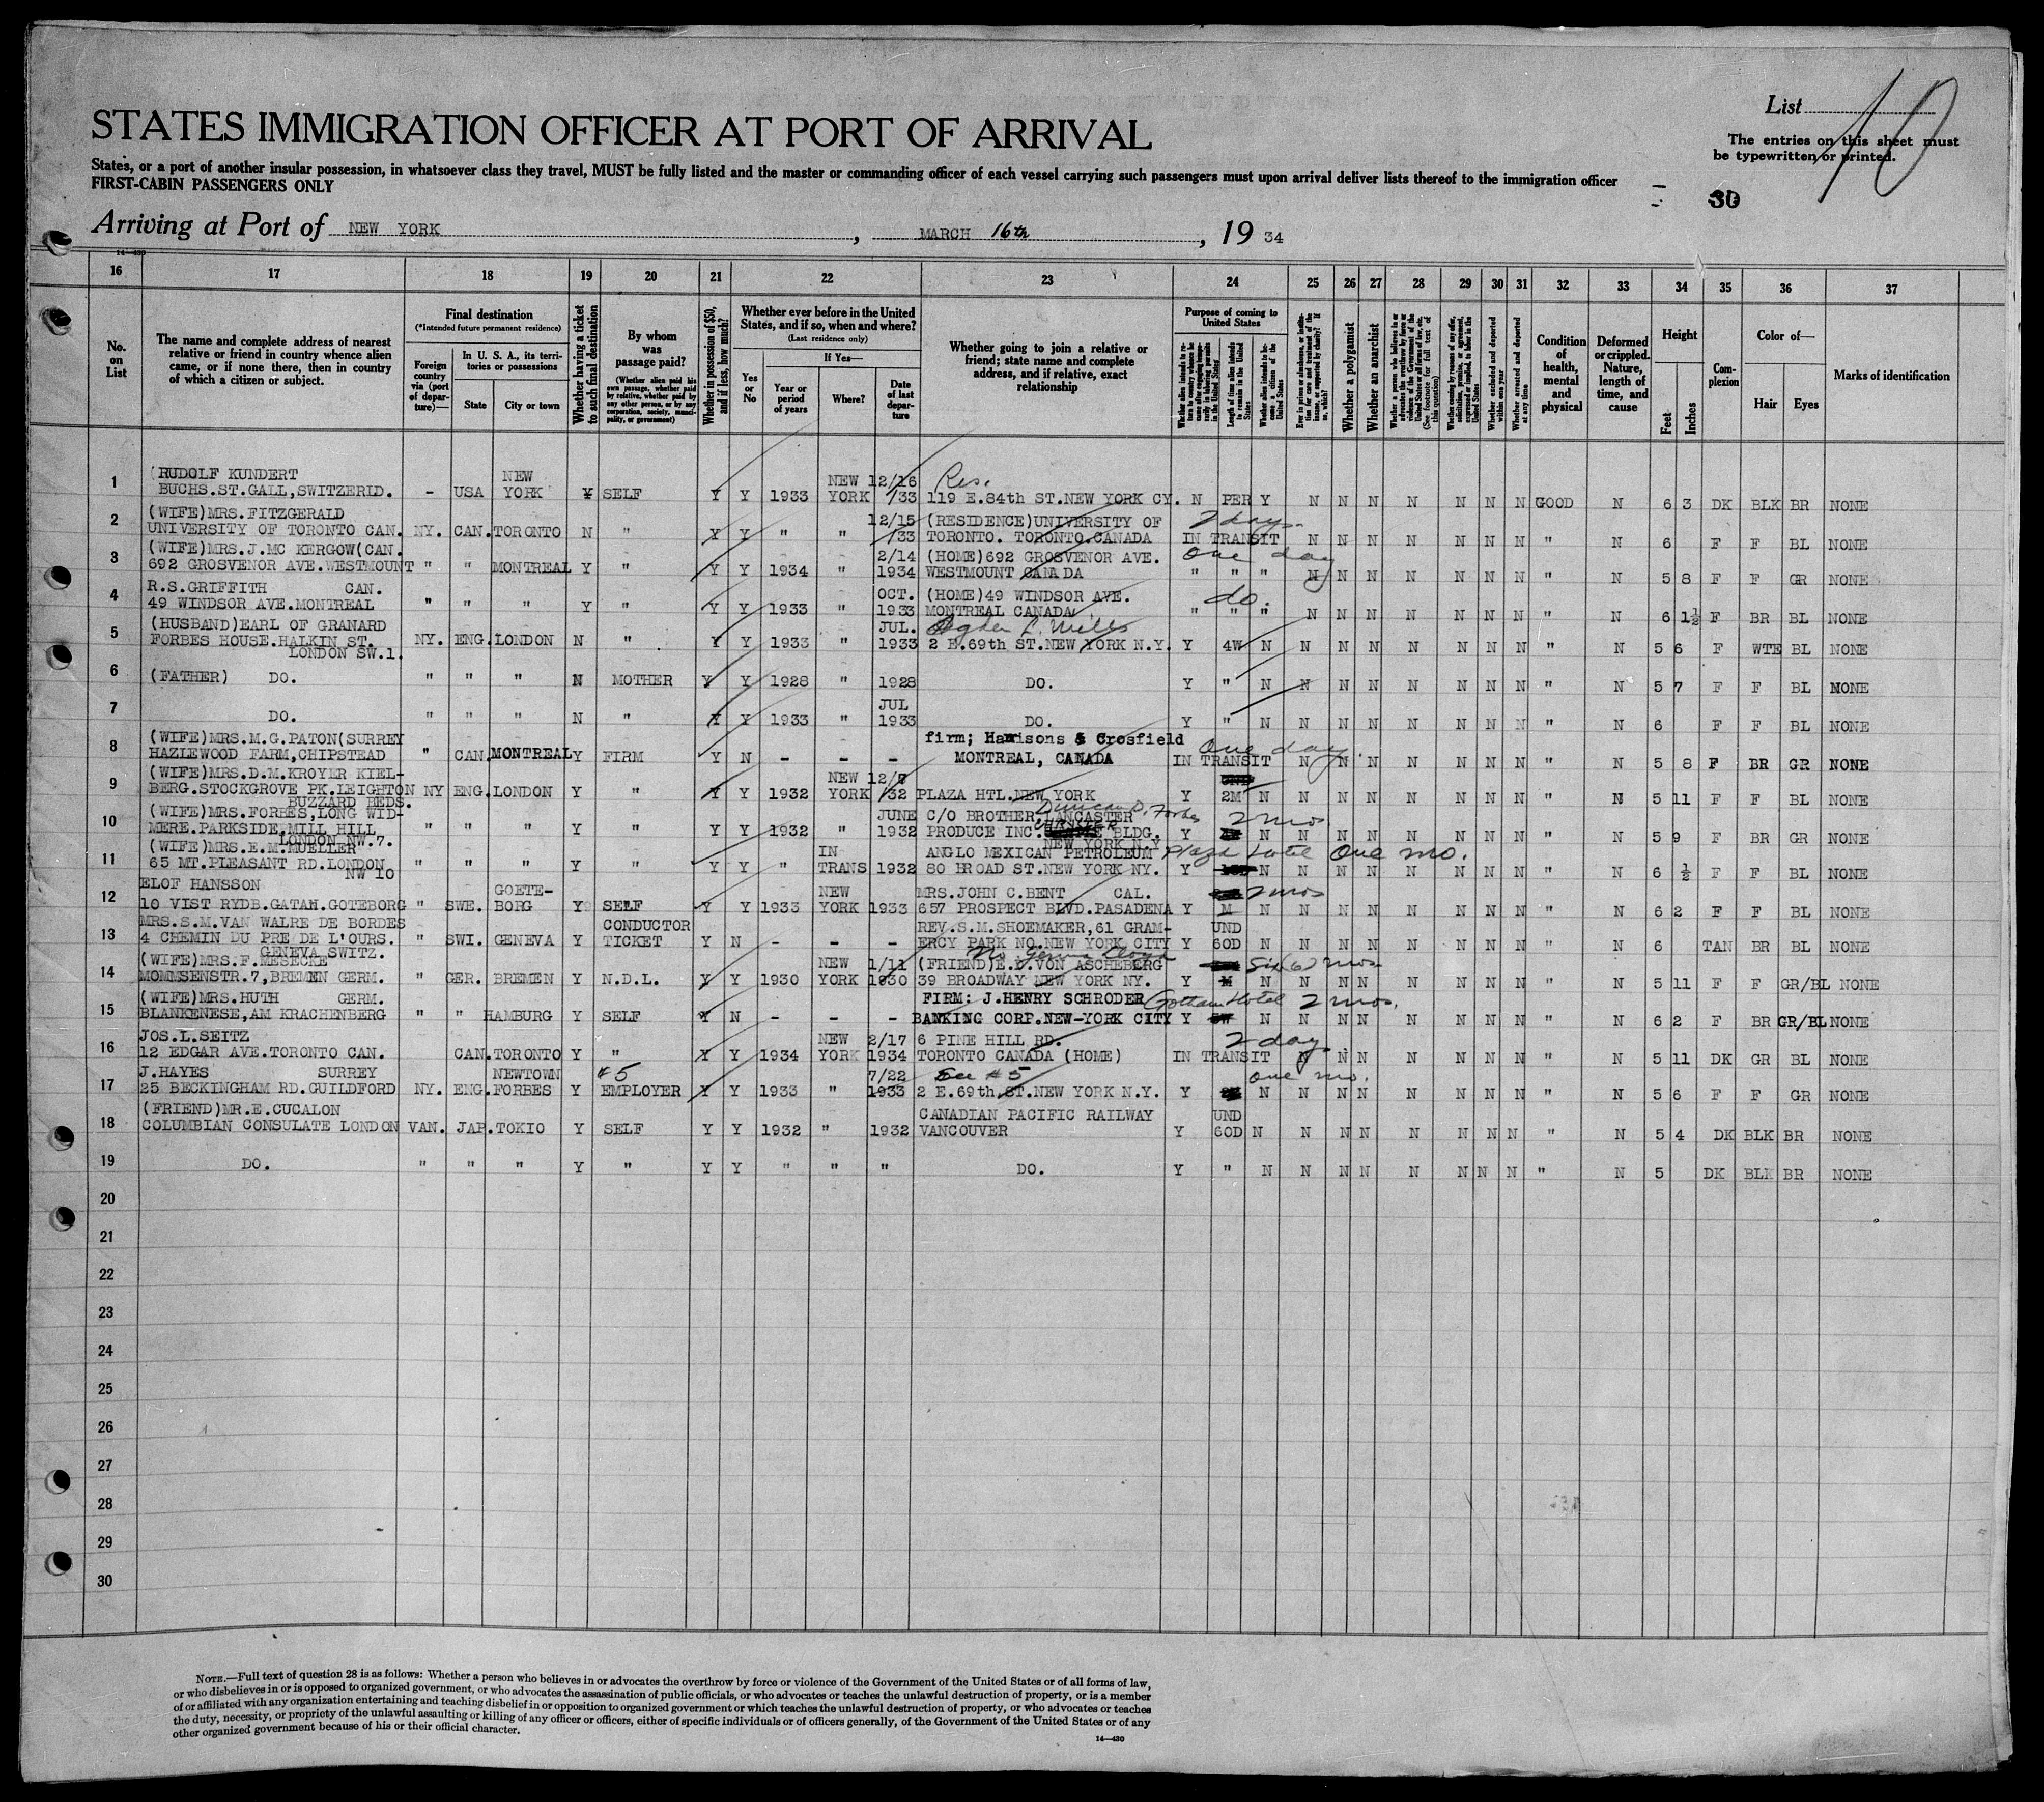 List 10
STATES IMMIGRATION OFFICER AT PORT OF ARRIVAL
The entries on this sheet must
be typewritten or printed.
States, or a port of another insular possession, in whatsoever class they travel, MUST be fully listed and the master or commanding officer of each vessel carrying such passengers must upon arrival deliver lists thereof to the immigration officer
FIRST-CABIN PASSENGERS ONLY
30
Arriving at Port of NEW YORK, MARCH 16th, 19 34
14—430
16 17 18 19 20 21 22 23 24 25 26 27 28 29 30 31 32 33 34 35 36 37
No. on List
The name and complete address of nearest relative or friend in country whence alien came, or if none there, then in country of which a citizen or subject.
Final destination
(*Intended future permanent residence)
Foreign country via (port of departure)—
In U. S. A., its territories or possessions
State
City or town
Whether having a ticket to such final destination
By whom was passage paid?
(Whether alien paid his own passage, whether paid by relative, whether paid by any other person, or by any corporation, society, municipality, or government)
Whether in possession of $50, and if less, how much?
Whether ever before in the United States, and if so, when and where?
(Last residence only)
Yes or No
If Yes—
Year or period of years
Where?
Date of last departure
Whether going to join a relative or friend; state name and complete address, and if relative, exact relationship
Purpose of coming to United States
Whether alien intends to return to country whence he came after engaging temporarily in laboring pursuits in the United States
Length of time alien intends to remain in the United States
Whether alien intends to become a citizen of the United States
Ever in prison or almshouse, or institution for care and treatment of the insane, or supported by charity? If so, which?
Whether a polygamist
Whether an anarchist
Whether a person who believes in or advocates the overthrow by force or violence of the Government of the United States or all forms of law, etc. (See footnote for full text of this question)
Whether coming by reason of any offer, solicitation, promise, or agreement, expressed or implied, to labor in the United States
Whether excluded and deported within one year
Whether arrested and deported at any time
Condition of health, mental and physical
Deformed or crippled. Nature, length of time, and cause
Height
Feet
Inches
Complexion
Color of—
Hair
Eyes
Marks of identification
NEW NEW 12/16 Res.
1 (RUDOLF KUNDERT
BUCHS.ST.GALL,SWITZERLD. - USA YORK Y SELF Y Y 1933 YORK /33 119 E.84th ST.NEW YORK CY. N PER Y N N N N N N N GOOD N 6 3 DK BLK BR NONE
2 (WIFE)MRS.FITZGERALD 12/15 (RESIDENCE)UNIVERSITY OF 2 days.
UNIVERSITY OF TORONTO CAN. NY. CAN. TORONTO N " Y Y " " /33 TORONTO. TORONTO.CANADA IN TRANSIT N N N N N N N " N 6 F F BL NONE
3 (WIFE)MRS.J.MC KERGOW(CAN. 2/14 (HOME)692 GROSVENOR AVE. One day
692 GROSVENOR AVE.WESTMOUNT " " MONTREAL Y " Y Y 1934 " 1934 WESTMOUNT CANADA " " " N N N N N N N " N 5 8 F F GR NONE
4 R.S.GRIFFITH CAN. OCT. (HOME)49 WINDSOR AVE. do.
49 WINDSOR AVE.MONTREAL " " " Y " Y Y 1933 " 1933 MONTREAL CANADA " " " N N N N N N N " N 6 1½ F BR BL NONE
5 (HUSBAND)EARL OF GRANARD JUL. Ogden L. Mills
FORBES HOUSE.HALKIN ST. NY. ENG. LONDON N " Y Y 1933 " 1933 2 E.69th ST.NEW YORK N.Y. Y 4W N N N N N N N N " N 5 6 F WTE BL NONE
LONDON SW.1.
6 (FATHER) DO. " " " N MOTHER Y Y 1928 " 1928 DO. Y " N N N N N N N N " N 5 7 F F BL NONE
7 DO. " " " N " Y Y 1933 " JUL 1933 DO. Y " N N N N N N N N " N 6 F F BL NONE
8 (WIFE)MRS.M.G.PATON(SURREY firm; Harrisons & Crosfield One day.
HAZLEWOOD FARM,CHIPSTEAD " CAN. MONTREAL Y FIRM Y N - - - MONTREAL, CANADA IN TRANSIT N N N N N N N " N 5 8 F BR GR NONE
9 (WIFE)MRS.D.M.KROYER KIEL- NEW 12/7
BERG.STOCKGROVE PK.LEIGHTON NY ENG. LONDON Y " Y Y 1932 YORK /32 PLAZA HTL.NEW YORK Y 2M N N N N N N N N " N 5 11 F F BL NONE
BUZZARD BEDS.
10 (WIFE)MRS.FORBES,LONG WID- JUNE C/O BROTHER,LANCASTER Duncan D. Forbes 2 mos
MERE.PARKSIDE,MILL HILL " " " Y " Y Y 1932 " 1932 PRODUCE INC. BLDG. Y N N N N N N N N " N 5 9 F BR GR NONE
LONDON NW.7. NEW YORK N.Y.
11 (WIFE)MRS.E.M.MUELLER IN ANGLO MEXICAN PETROLEUM Plaza Hotel One mo.
65 MT.PLEASANT RD.LONDON " " " Y " Y Y " TRANS 1932 80 BROAD ST.NEW YORK NY. Y N N N N N N N N " N 6 ½ F F BL NONE
NW 10
12 ELOF HANSSON GOETE- NEW MRS.JOHN C.BENT CAL. 2 mos
10 VIST RYDB.GATAN.GOTEBORG " SWE. BORG Y SELF Y Y 1933 YORK 1933 657 PROSPECT BLVD.PASADENA Y M N N N N N N N N " N 6 2 F F BL NONE
13 MRS.S.M.VAN WALRE DE BORDES CONDUCTOR REV.S.M.SHOEMAKER,61 GRAM- UND
4 CHEMIN DU PRE DE L'OURS. " SWI. GENEVA Y TICKET Y N - - - ERCY PARK NO.NEW YORK CITY Y 60D N N N N N N N N " N 6 TAN BR BL NONE
GENEVA SWITZ.
14 (WIFE)MRS.F.MESECKE NEW 1/11 (FRIEND)E.J.VON ASCHEBERG Six(6) mos
MOMMSENSTR.7,BREMEN GERM. " GER. BREMEN Y N.D.L. Y Y 1930 YORK 1930 39 BROADWAY NEW YORK NY. Y M N N N N N N N N " N 5 11 F F GR/BL NONE
15 (WIFE)MRS.HUTH GERM. FIRM: J.HENRY SCHRODER Gotham Hotel 2 mos.
BLANKENESE,AM KRACHENBERG " " HAMBURG Y SELF Y N - - - BANKING CORP.NEW-YORK CITY Y N N N N N N N N " N 6 2 F BR GR/BL NONE
16 JOS.L.SEITZ NEW 2/17 6 PINE HILL RD. 2 day.
12 EDGAR AVE.TORONTO CAN. CAN. TORONTO Y " Y Y 1934 YORK 1934 TORONTO CANADA (HOME) IN TRANSIT N N N N N N N " N 5 11 DK GR BL NONE
17 J.HAYES SURREY NEWTOWN #5 7/22 See #5 One mo.
25 BECKINGHAM RD.GUILDFORD NY. ENG. FORBES Y EMPLOYER Y Y 1933 " 1933 2 E.69th ST.NEW YORK N.Y. Y N N N N N N N N " N 5 6 F F GR NONE
18 (FRIEND)MR.E.CUCALON CANADIAN PACIFIC RAILWAY UND
COLUMBIAN CONSULATE LONDON VAN. JAP. TOKIO Y SELF Y Y 1932 " 1932 VANCOUVER Y 60D N N N N N N N N " N 5 4 DK BLK BR NONE
19 DO. " " " Y " Y Y " " " DO. Y " N N N N N N N N " N 5 DK BLK BR NONE
20
21
22
23
24
25
26
27
28
29
30
NOTE.—Full text of question 28 is as follows: Whether a person who believes in or advocates the overthrow by force or violence of the Government of the United States or of all forms of law,
or who disbelieves in or is opposed to organized government, or who advocates the assassination of public officials, or who advocates or teaches the unlawful destruction of property, or is a member
of or affiliated with any organization entertaining and teaching disbelief in or opposition to organized government or which teaches the unlawful destruction of property, or who advocates or teaches
the duty, necessity, or propriety of the unlawful assaulting or killing of any officer or officers, either of specific individuals or of officers generally, of the Government of the United States or of any
other organized government because of his or their official character.
14—430